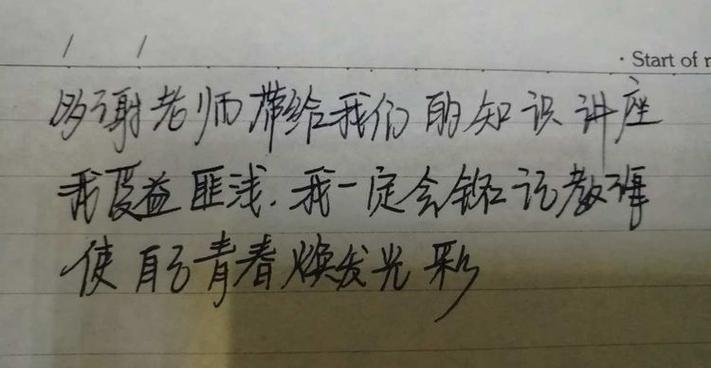 / /
· Start of
多谢老师带给我们的知识讲座
我受益匪浅.我一定会铭记教诲
使自己青春焕发光彩